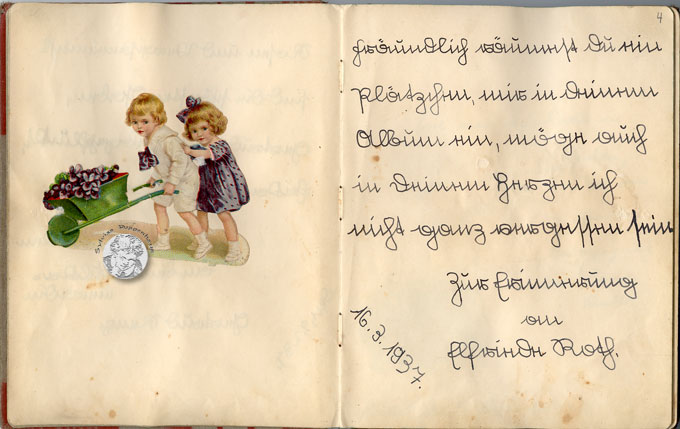 Freundlich räumest Du ein
Plätzchen, mir in Deinem
Album ein, möge auch
in Deinem Herzen ich
nicht ganz vergessen sein
Zur Erinnerung
an
Elfriede Roth.
16.3.1937.
4